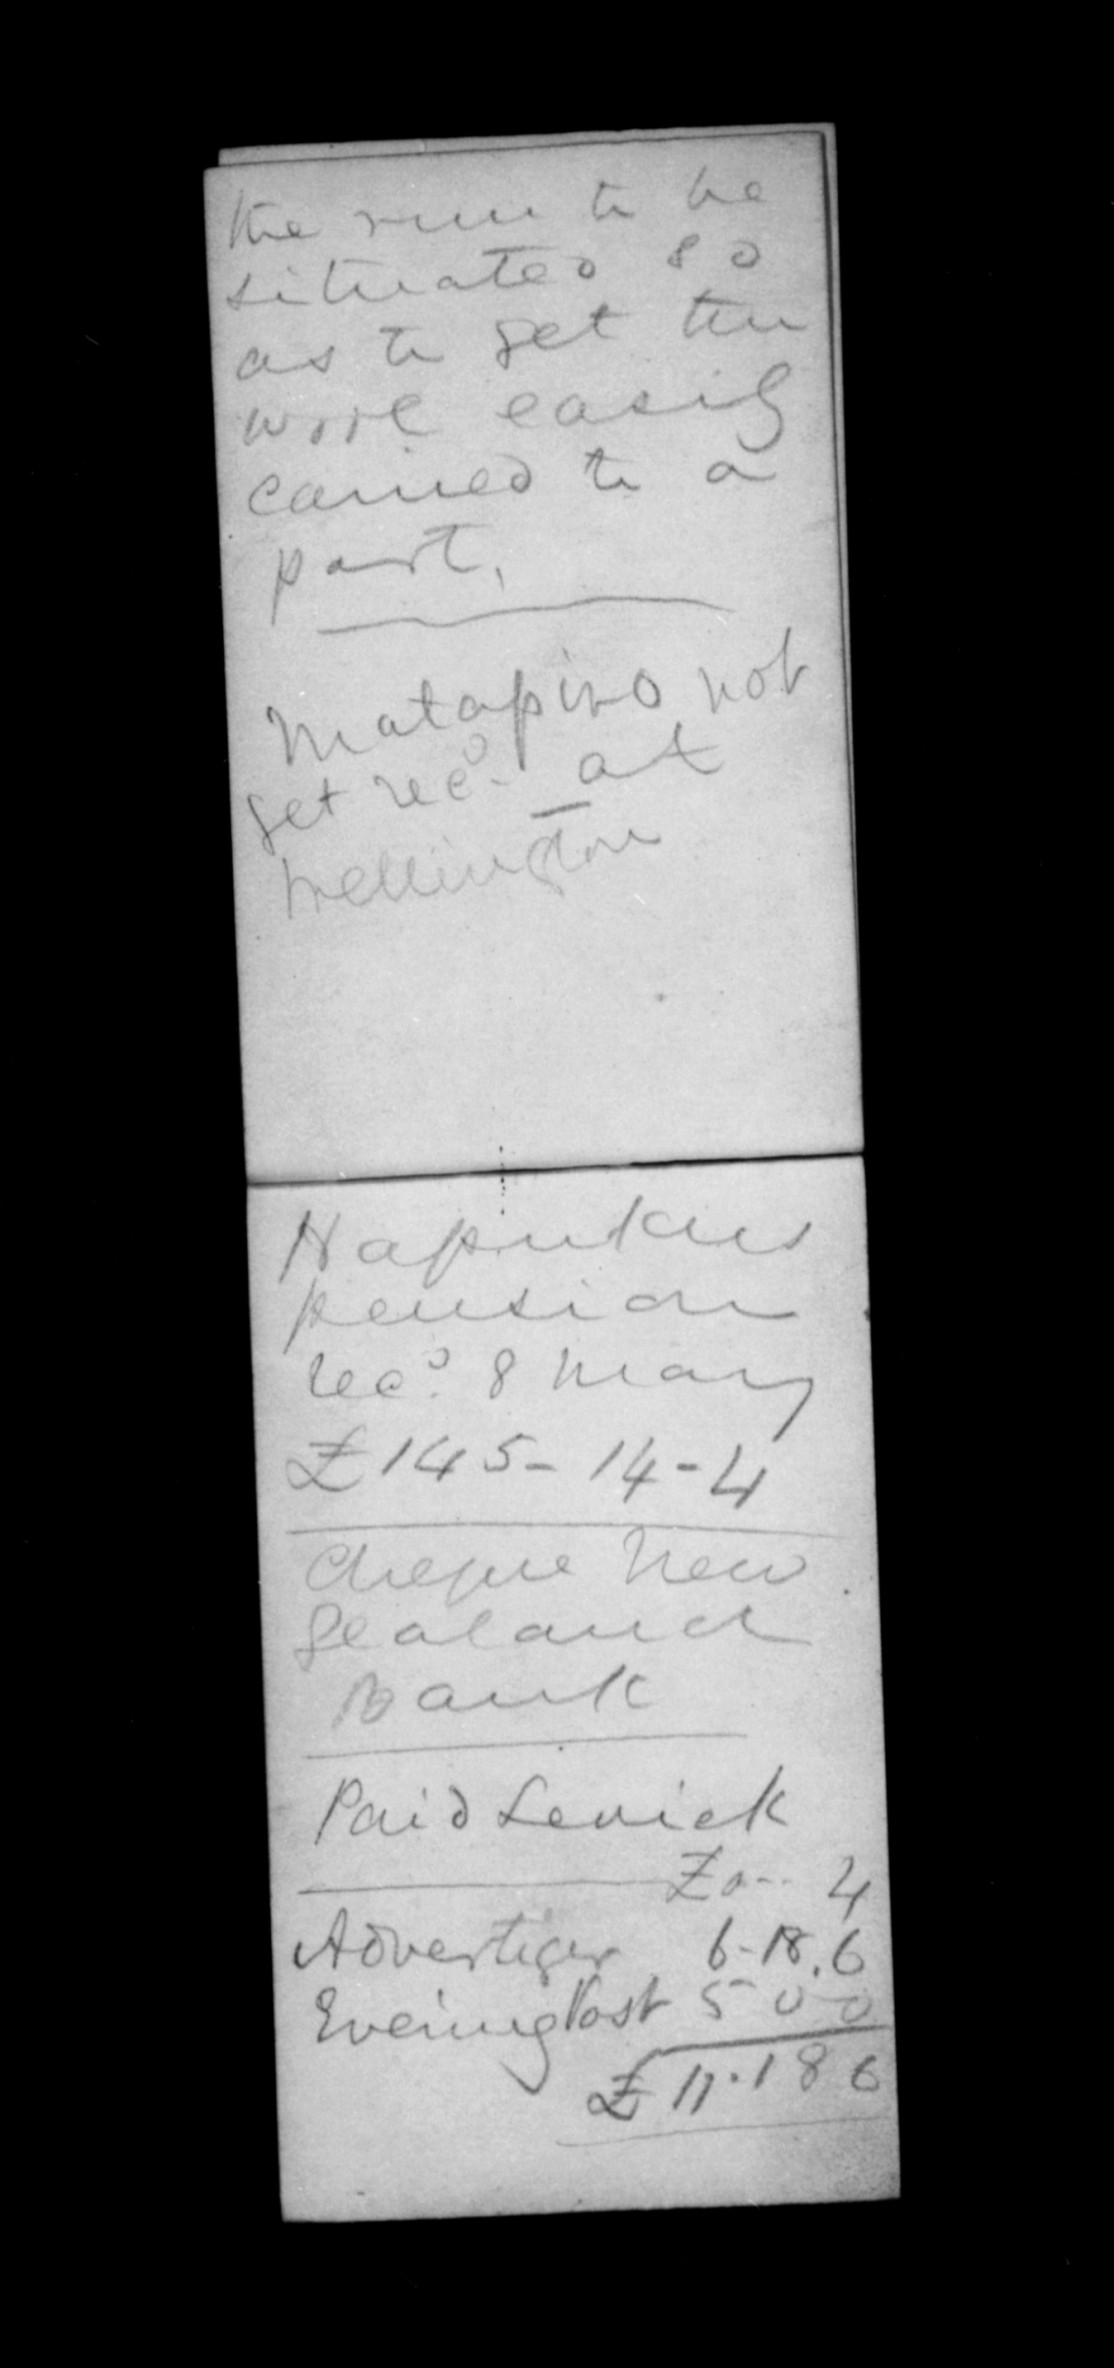 the run to be
situated so
as to get the
wool easily
carried to a
port.
Matapiro not
yet recd. at
Wellington
Napukus
pension
recd. 8 May
£145-14-4
Cheque New
Zealand
Bank
Paid Levick
£0-- 4
Advertiser 6-18.6
Evening Post 5 0 0
£11.18 6